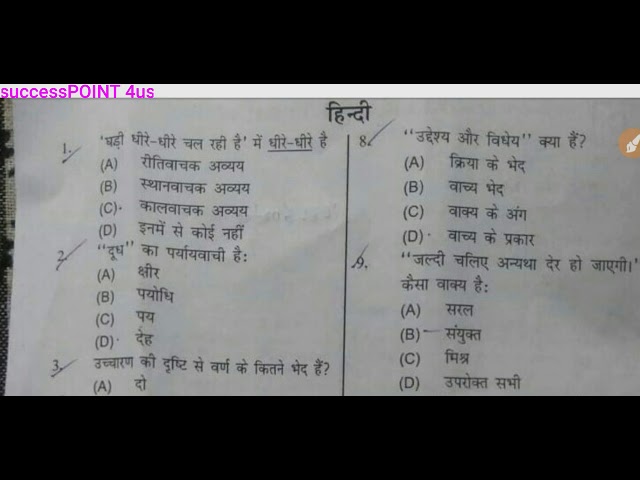 successPOINT 4us
हिन्दी
1. 'घड़ी धीरे-धीरे चल रही है' में धीरे-धीरे है
(A) रीतिवाचक अव्यय
(B) स्थानवाचक अव्यय
(C) कालवाचक अव्यय
(D) इनमें से कोई नहीं
2. "दूध" का पर्यायवाची है:
(A) क्षीर
(B) पयोधि
(C) पय
(D) देह
3. उच्चारण की दृष्टि से वर्ण के कितने भेद हैं?
(A) दो
8. "उद्देश्य और विधेय" क्या हैं?
(A) क्रिया के भेद
(B) वाच्य भेद
(C) वाक्य के अंग
(D) वाच्य के प्रकार
9. "जल्दी चलिए अन्यथा देर हो जाएगी।'
कैसा वाक्य है:
(A) सरल
(B) संयुक्त
(C) मिश्र
(D) उपरोक्त सभी